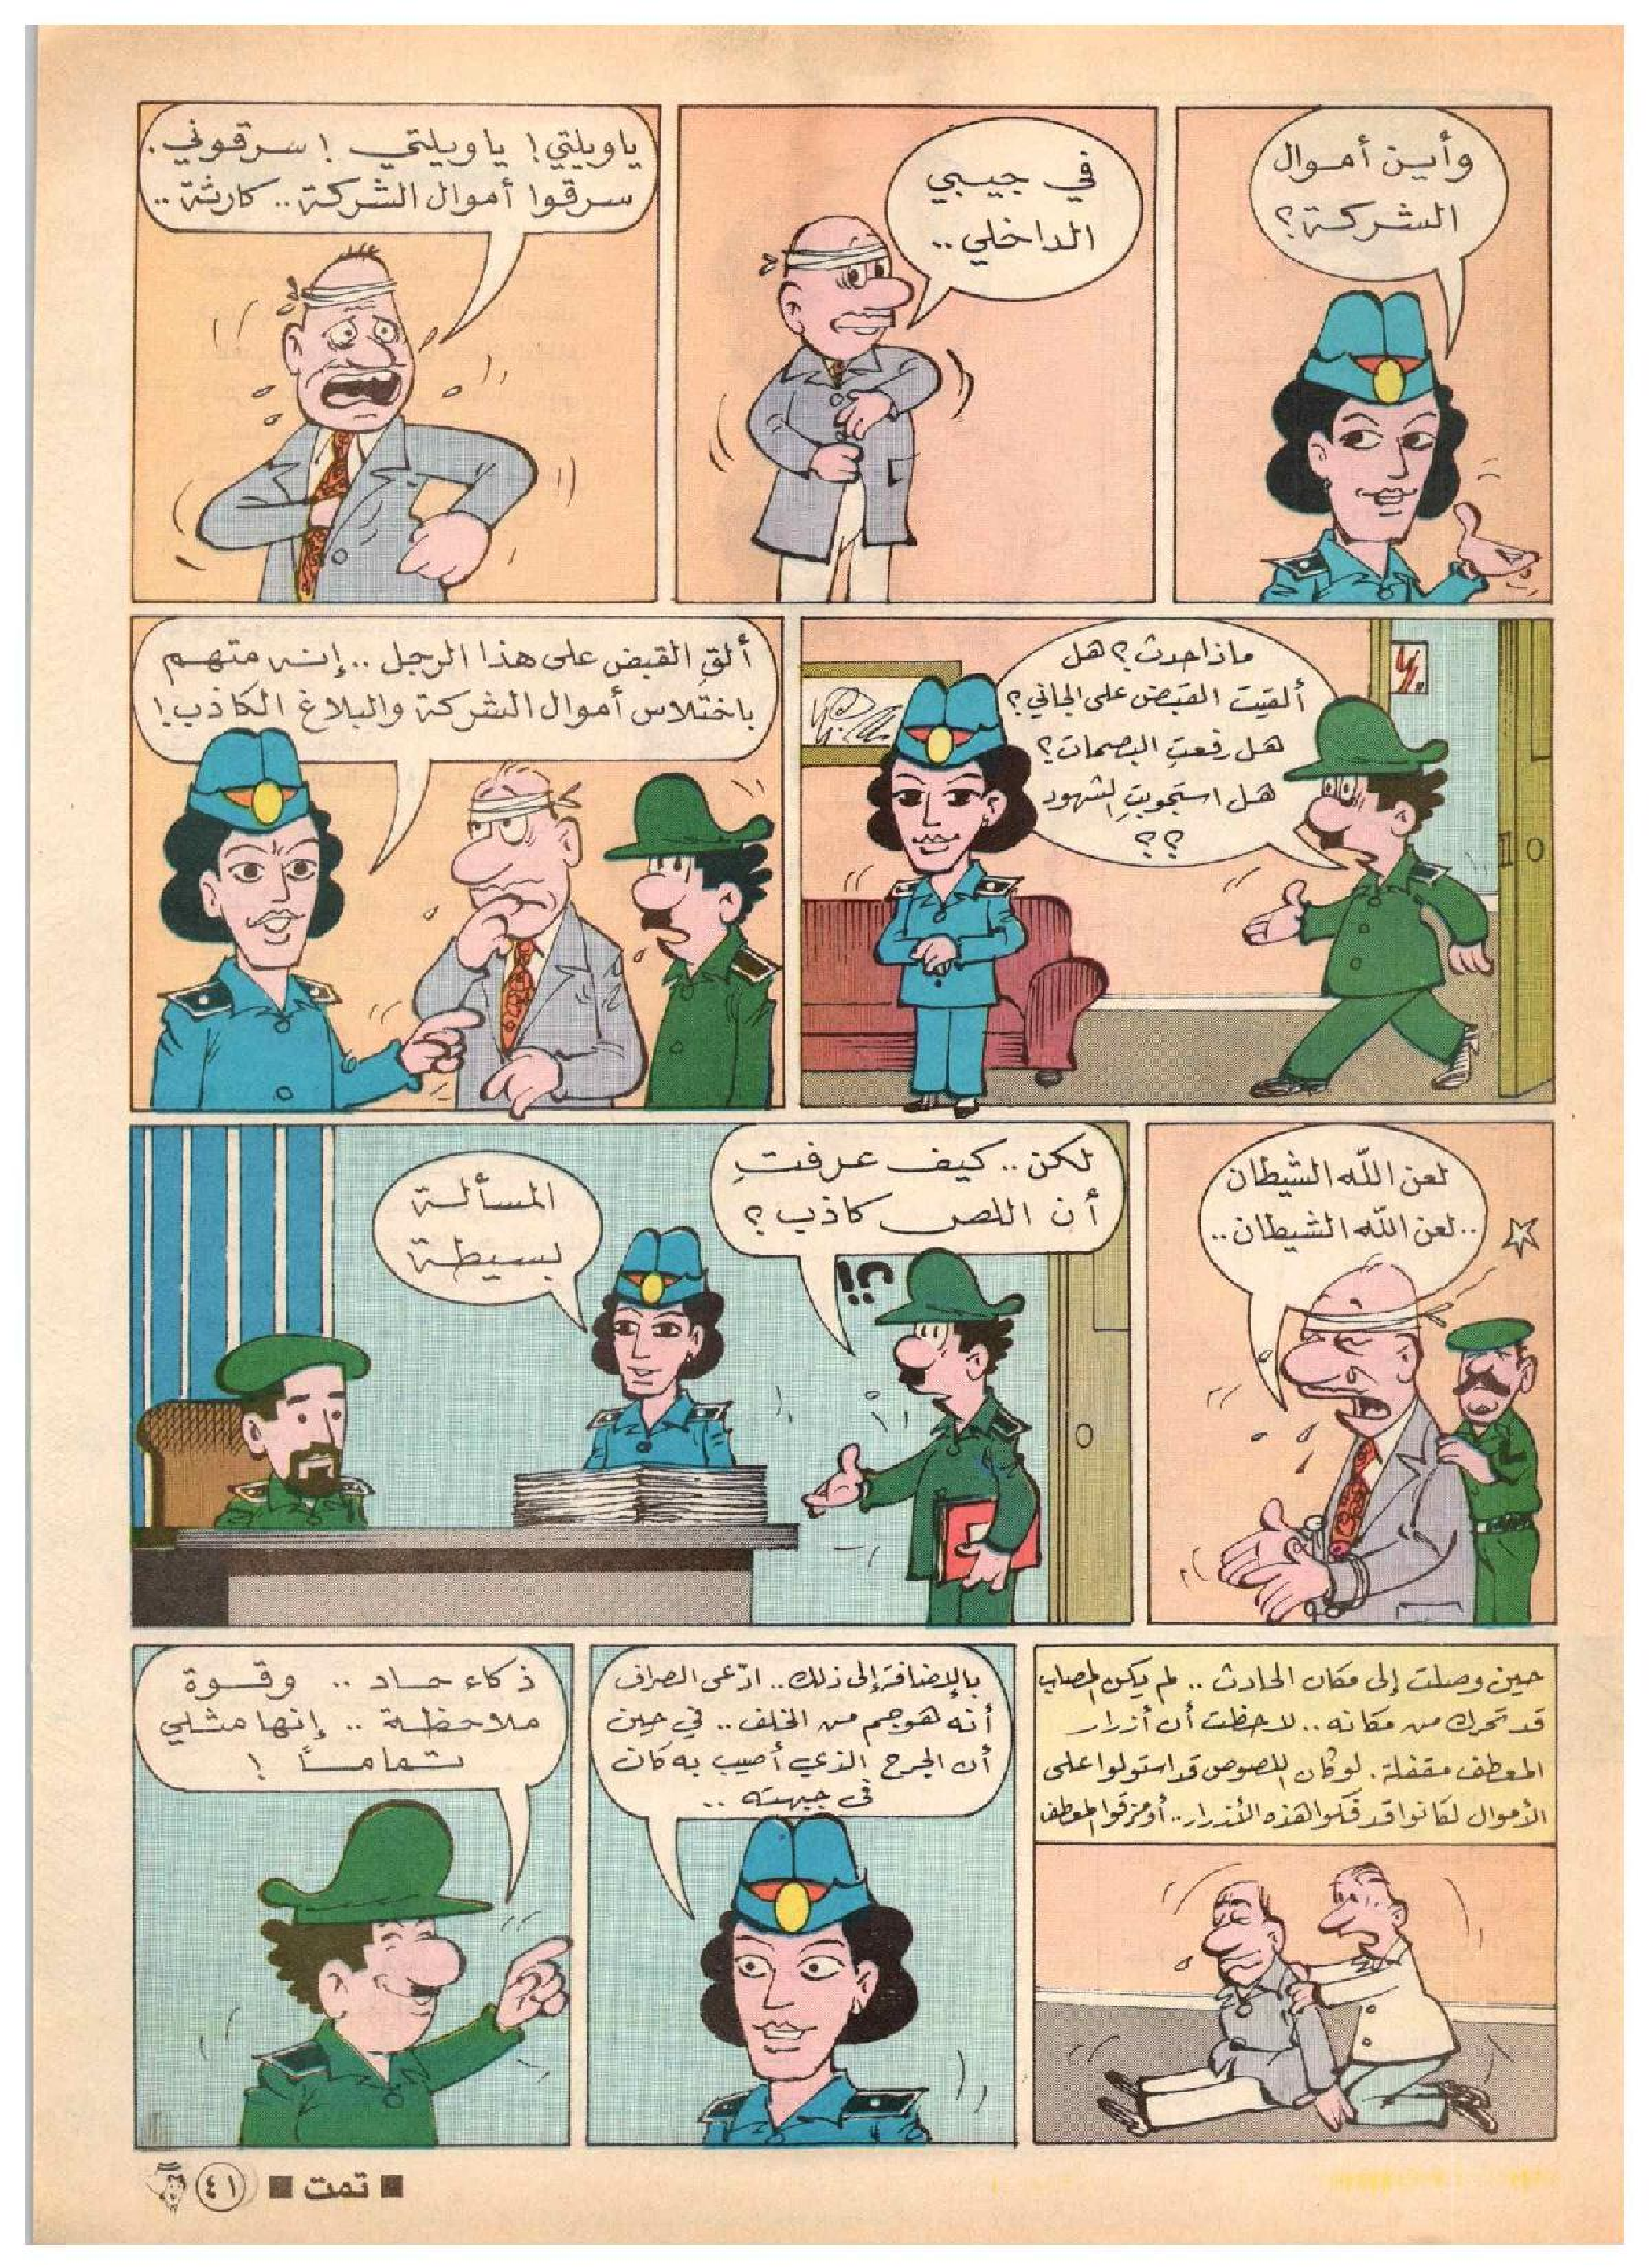 وأين أموال
الشركة؟
في جيبي
الداخلي..
ياويلتي! ياويلتي! سرقوني.
سرقوا أموال الشركة.. كارثة..
ماذا حدث؟ هل
ألقيت القبض على الجاني؟
هل رفعتِ البصمات؟
هل استجوبتِ الشهود
؟؟
ألقِ القبض على هذا الرجل.. إنه متهم
باختلاس أموال الشركة والبلاغ الكاذب!
لعن اللّه الشيطان
..لعن اللّه الشيطان..
لكن.. كيف عرفتِ
أن اللص كاذب؟
؟!
المسألة
بسيطة
حين وصلت إلى مكان الحادث.. لم يكن المصاب
قد تحرك من مكانه.. لاحظت أن أزرار
المعطف مقفلة. لو كان اللصوص قد استولوا على
الأموال لكانوا قد فكوا هذه الأزرار.. أو مزقوا المعطف
بالإضافة إلى ذلك.. ادّعى الصراف
أنه هوجم من الخلف.. في حين
أن الجرح الذي أصيب به كان
في جبهته..
ذكاء حاد.. وقوة
ملاحظة.. إنها مثلي
تماماً!
■ تمت ■ ٤١